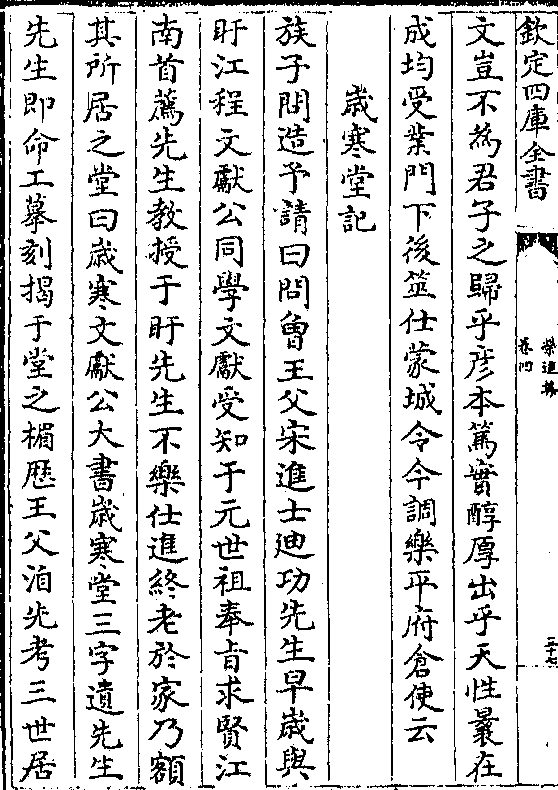 欽定四庫全書
榮進集
卷四
三十七
文豈不為君子之歸乎彦本篤實醇厚出乎天性曩在
成均受業門下後筮仕蒙城令今調樂平府倉使云
歲寒堂記
族子問造予請曰問曾王父宋進士迪功先生早歲與
盱江程文獻公同學文獻受知于元世祖奉旨求賢江
南首薦先生教授于盱先生不樂仕進終老於家乃額
其所居之堂曰歲寒文獻公大書歲寒堂三字遺先生
先生即命工摹刻揭于堂之楣歴王父洎先考三世居